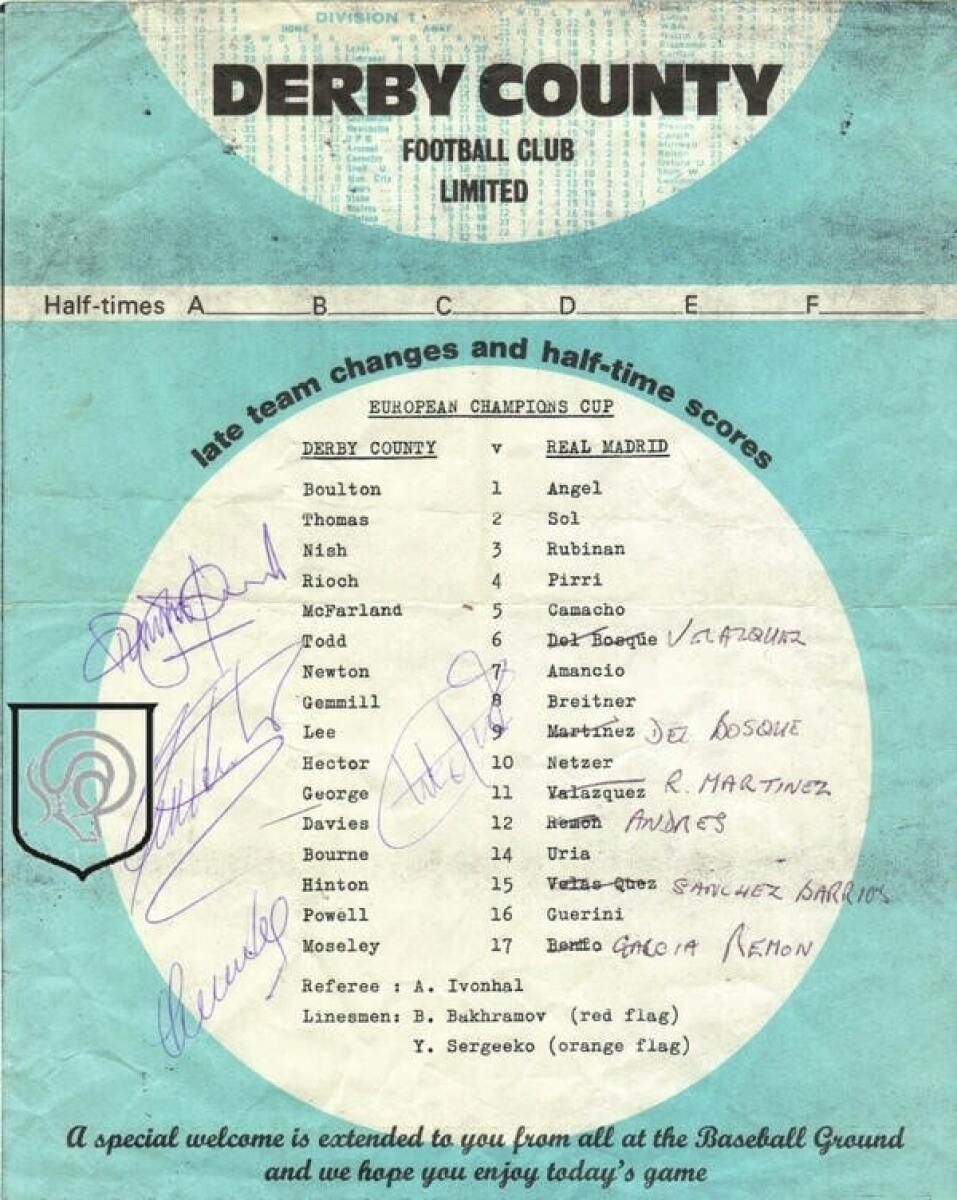 DIVISION 1
HOME AWAY
DERBY COUNTY
FOOTBALL CLUB
LIMITED
Half-times A B C D E F
late team changes and half-time scores
EUROPEAN CHAMPIONS CUP
DERBY COUNTY v REAL MADRID
Boulton 1 Angel
Thomas 2 Sol
Nish 3 Rubinan
Rioch 4 Pirri
McFarland 5 Camacho
Todd 6 Del Bosque VELAZQUEZ
Newton 7 Amancio
Gemmill 8 Breitner
Lee 9 Martinez DEL BOSQUE
Hector 10 Netzer
George 11 Valazquez R. MARTINEZ
Davies 12 Remon ANDRES
Bourne 14 Uria
Hinton 15 Velas Quez SANCHEZ BARRIOS
Powell 16 Guerini
Moseley 17 Benito GARCIA REMON
Referee : A. Ivonhal
Linesmen: B. Bakhramov (red flag)
Y. Sergeeko (orange flag)
A special welcome is extended to you from all at the Baseball Ground
and we hope you enjoy today's game